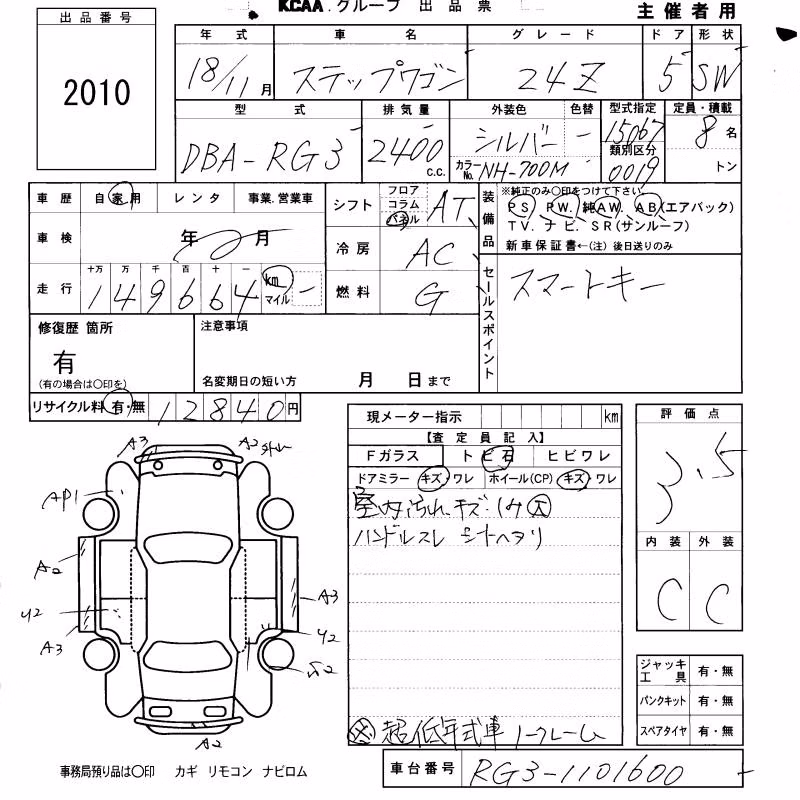 KCAA.グループ 出品票
主催者用
出品番号
2010
年式 車名 グレード ドア 形状
18/11月 ステップワゴン 24Z 5 SW
型式 排気量 外装色 色替 型式指定 定員・積載
DBA-RG3 2400 c.c. シルバー ー 15067 8名
類別区分
カラーNo. NH-700M 0019 トン
車歴 自家用 レンタ 事業.営業車
シフト フロア コラム パネル AT
装備品 ※純正のみ○印をつけて下さい
PS PW. 純AW. AB(エアバック)
TV. ナビ. SR(サンルーフ)
新車保証書←(注) 後日送りのみ
車検 年 月
冷房 AC
走行 十万 万 千 百 十 一
149664 km マイル ー
燃料 G
セールスポイント スマートキー
修復歴 箇所
有
(有の場合は○印を)
注意事項
名変期日の短い方 月 日まで
リサイクル料 有・無 12840円
現メーター指示 km
【査定員記入】
Fガラス トビ石 ヒビワレ
ドアミラー キズ・ワレ ホイール(CP) キズ・ワレ
室内汚れ、キズ・
ハンドルスレ シートヘタリ
超低年式車 ノークレーム
評価点
3.5
内装 外装
C C
ジャッキ工具 有・無
パンクキット 有・無
スペアタイヤ 有・無
A3 A2
AP1
A2
A3
A3
A2
事務局預り品は○印 カギ リモコン ナビロム
車台番号 RG3-1101600